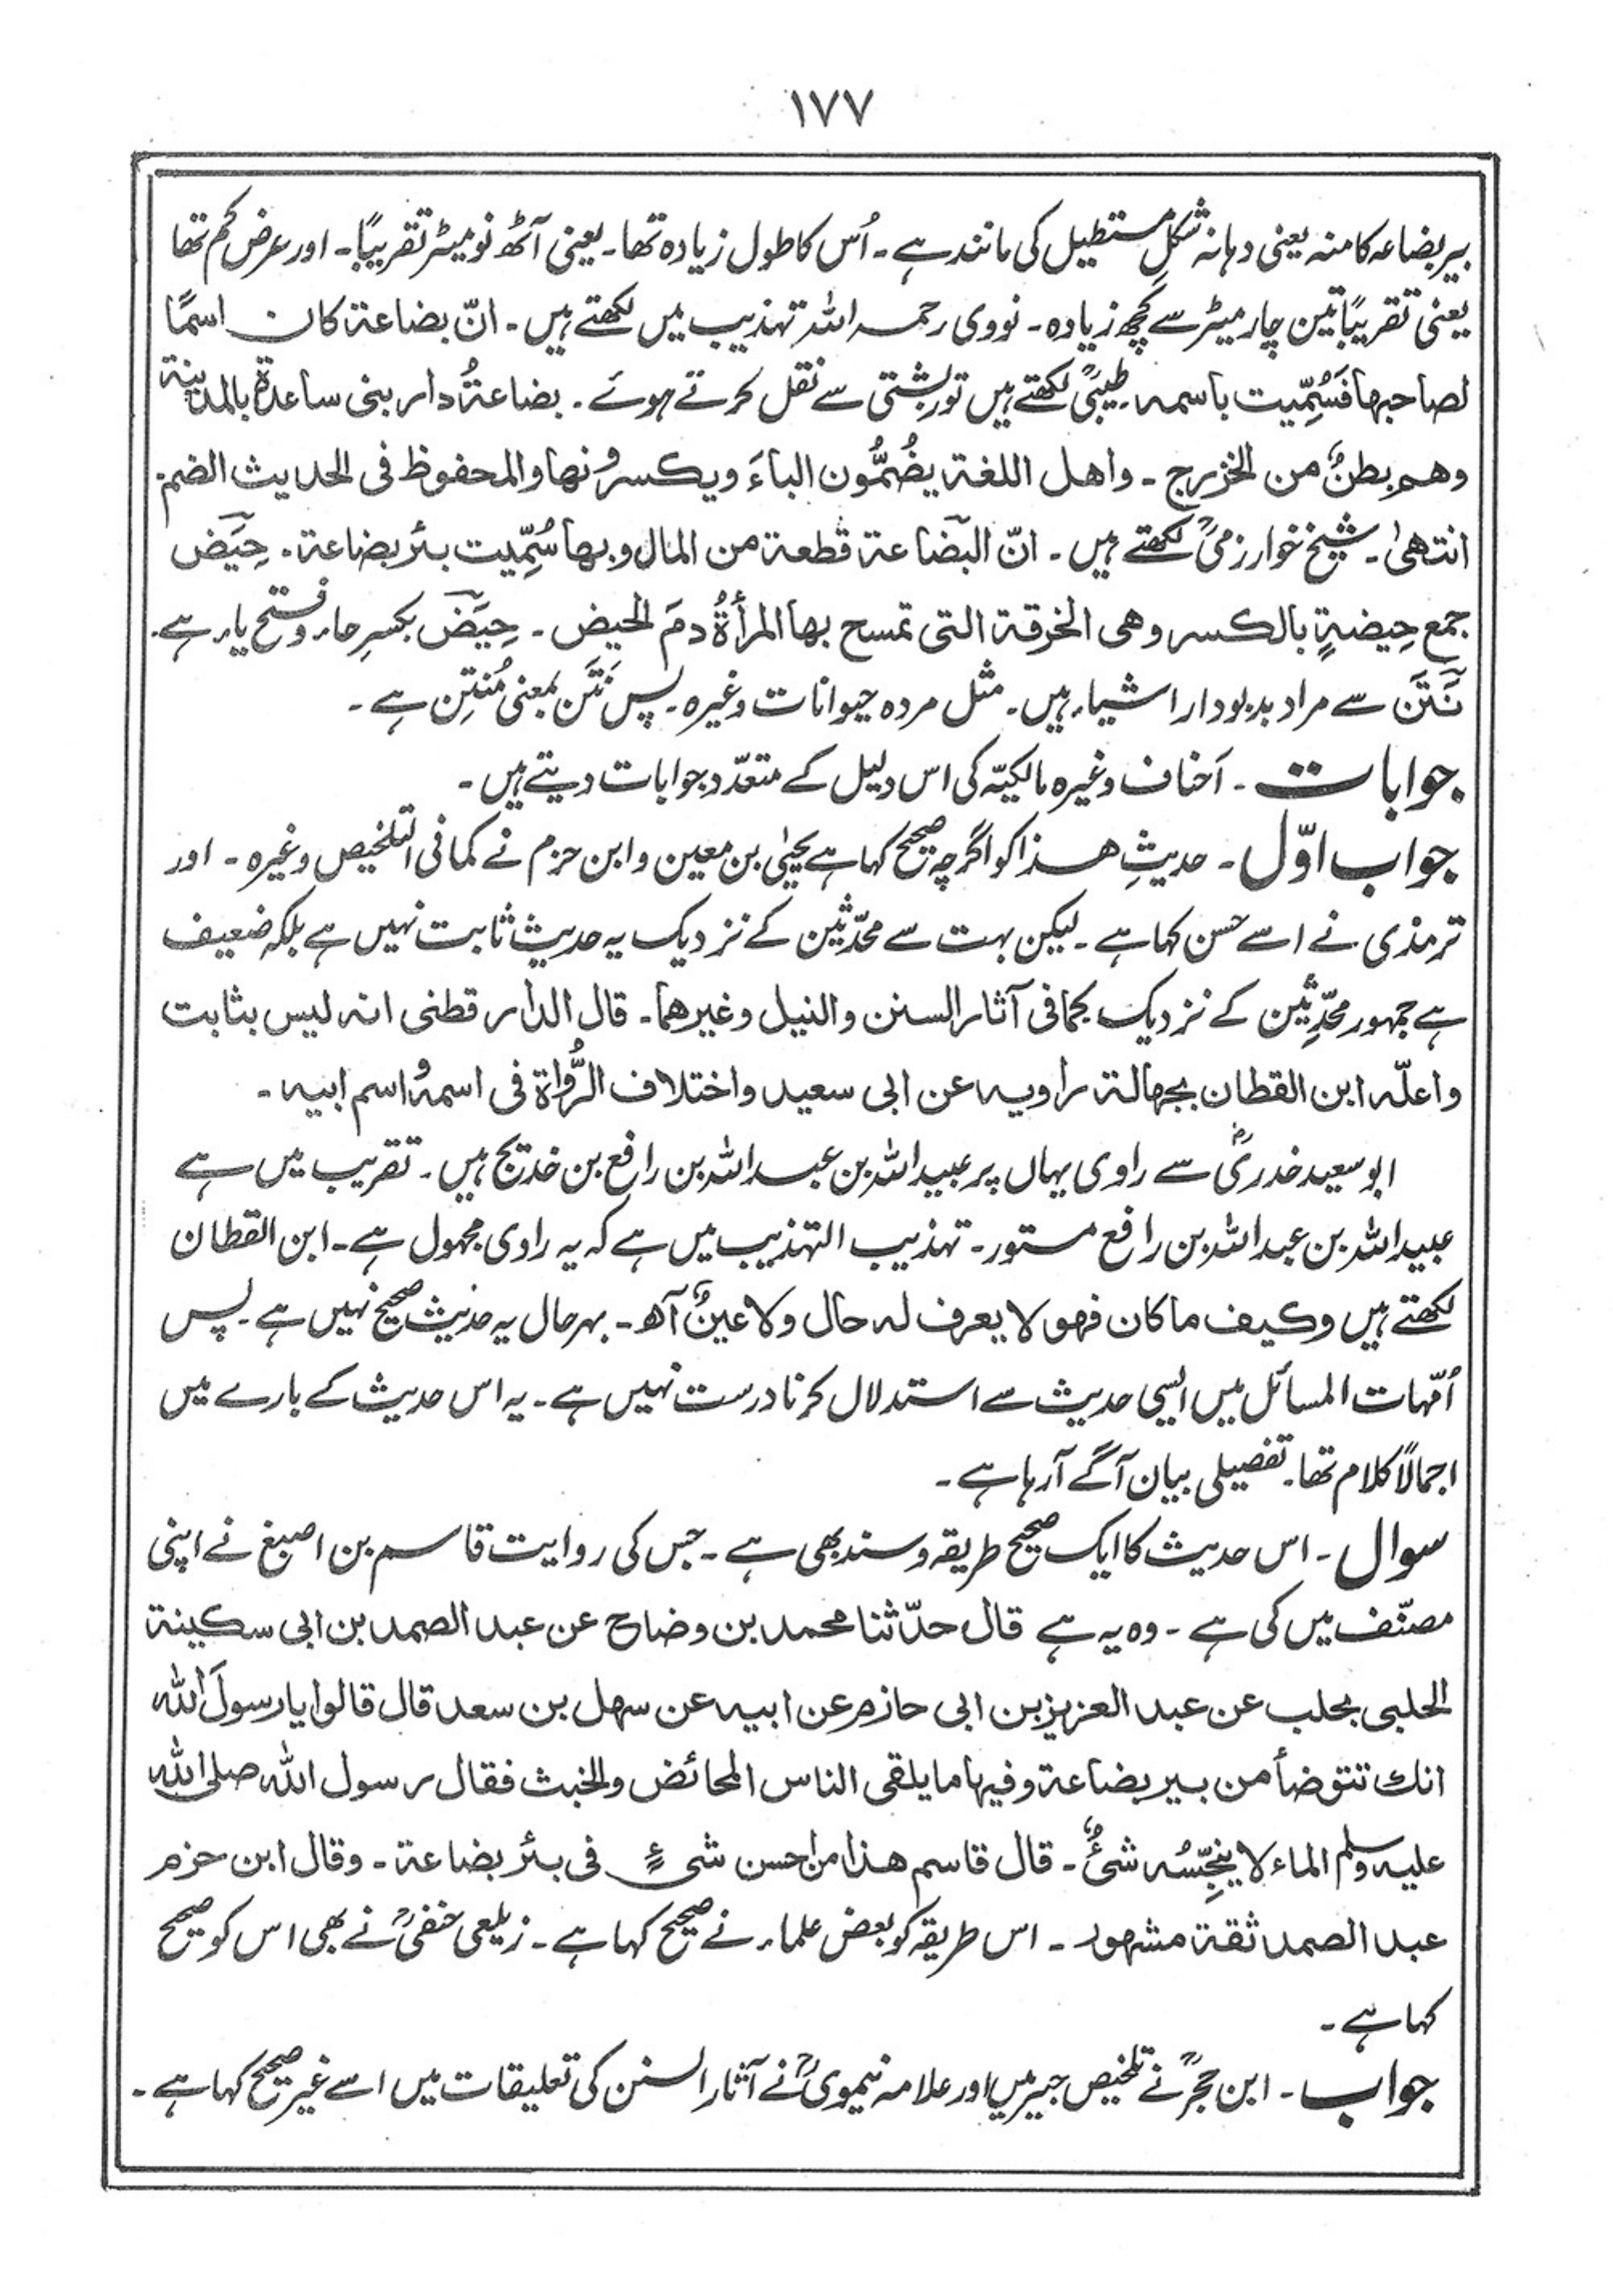 ١٧٧
بیر بضاعہ کا منہ یعنی دہانہ شکلِ مستطیل کی مانند ہے۔ اُس کا طول زیادہ تھا۔ یعنی آٹھ نو میٹر تقریبًا۔ اور عرض کم تھا
یعنی تقریبًا تین چار میٹر سے کچھ زیادہ۔ نووی رحمہ اللہ تہذیب میں لکھتے ہیں۔ انّ بضاعۃ کان اسمًا
لصاحبھا فَسُمِّیت باسمہ۔ طیبیؒ لکھتے ہیں تورپشتی سے نقل کرتے ہوئے۔ بضاعۃُ دار بنی ساعدۃ بالمدینۃ
وھم بطنٌ من الخزرج۔ واھل اللغۃ یضُمُّون الباءَ ویکسرونھا والمحفوظ فی الحدیث الضم۔
انتھیٰ۔ شیخ خوارزمیؒ لکھتے ہیں۔ انّ البضاعۃ قطعۃ من المال وبھا سُمِّیت بئر بضاعۃ۔ حِیَض
جمع حِیضۃٍ بالکسر وھی الخرقۃ التی تمسح بھا المرأۃُ دمَ الحیض۔ حِیَض بکسرِ حاء و فتح یاء ہے۔
نَتَن سے مراد بدبودار اشیاء ہیں۔ مثل مردہ حیوانات وغیرہ۔ پس نَتَن بمعنی مُنتِن ہے۔
جوابات۔ اَحناف وغیرہ مالکیّہ کی اس دلیل کے متعدّد جوابات دیتے ہیں۔
جواب اوّل۔ حدیثِ ھذا کو اگرچہ صحیح کہا ہے یحییٰ بن معین وابن حزم نے کما فی التلخیص وغیرہ۔ اور
ترمذی نے اسے حسن کہا ہے۔ لیکن بہت سے محدّثین کے نزدیک یہ حدیث ثابت نہیں ہے بلکہ ضعیف
ہے جمہور محدِّثین کے نزدیک کما فی آثار السنن والنیل وغیرھما۔ قال الدار قطنی انہ لیس بثابت
واعلّہ ابن القطان بجھالۃ راویہ عن ابی سعید واختلاف الرُّواۃ فی اسمہٖ واسم ابیہ۔
ابو سعید خدریؓ سے راوی یہاں پر عبید اللہ بن عبد اللہ بن رافع بن خدیج ہیں۔ تقریب میں ہے
عبید اللہ بن عبد اللہ بن رافع مستور۔ تہذیب التہذیب میں ہے کہ یہ راوی مجہول ہے۔ ابن القطان
لکھتے ہیں وکیف ما کان فھو لا یعرف لہ حال ولا عینٌ آھ۔ بہرحال یہ حدیث صحیح نہیں ہے۔ پس
اُمّہات المسائل میں ایسی حدیث سے استدلال کرنا درست نہیں ہے۔ یہ اس حدیث کے بارے میں
اجمالاً کلام تھا۔ تفصیلی بیان آگے آرہا ہے۔
سوال۔ اس حدیث کا ایک صحیح طریقہ و سند بھی ہے۔ جس کی روایت قاسم بن اصبغ نے اپنی
مصنّف میں کی ہے۔ وہ یہ ہے قال حدّثنا محمد بن وضاح عن عبد الصمد بن ابی سکینۃ
الحلبی بحلب عن عبد العزیز بن ابی حازم عن ابیہ عن سھل بن سعد قال قالوا یا رسولَ اللہ
انك تتوضأ من بیر بضاعۃ وفیھا ما یلقی الناس المحائض والخبث فقال رسول اللہ صلی اللہ
علیہ وسلم الماء لا ینجِّسُہ شیءٌ۔ قال قاسم ھذا من احسن شیءٍ فی بئر بضاعۃ۔ وقال ابن حزم
عبد الصمد ثقۃ مشھور۔ اس طریقہ کو بعض علماء نے صحیح کہا ہے۔ زیلعی حنفیؒ نے بھی اس کو صحیح
کہا ہے۔
جواب۔ ابن حجرؒ نے تلخیص حبیر میں اور علامہ نیمویؒ نے آثار السنن کی تعلیقات میں اسے غیر صحیح کہا ہے۔